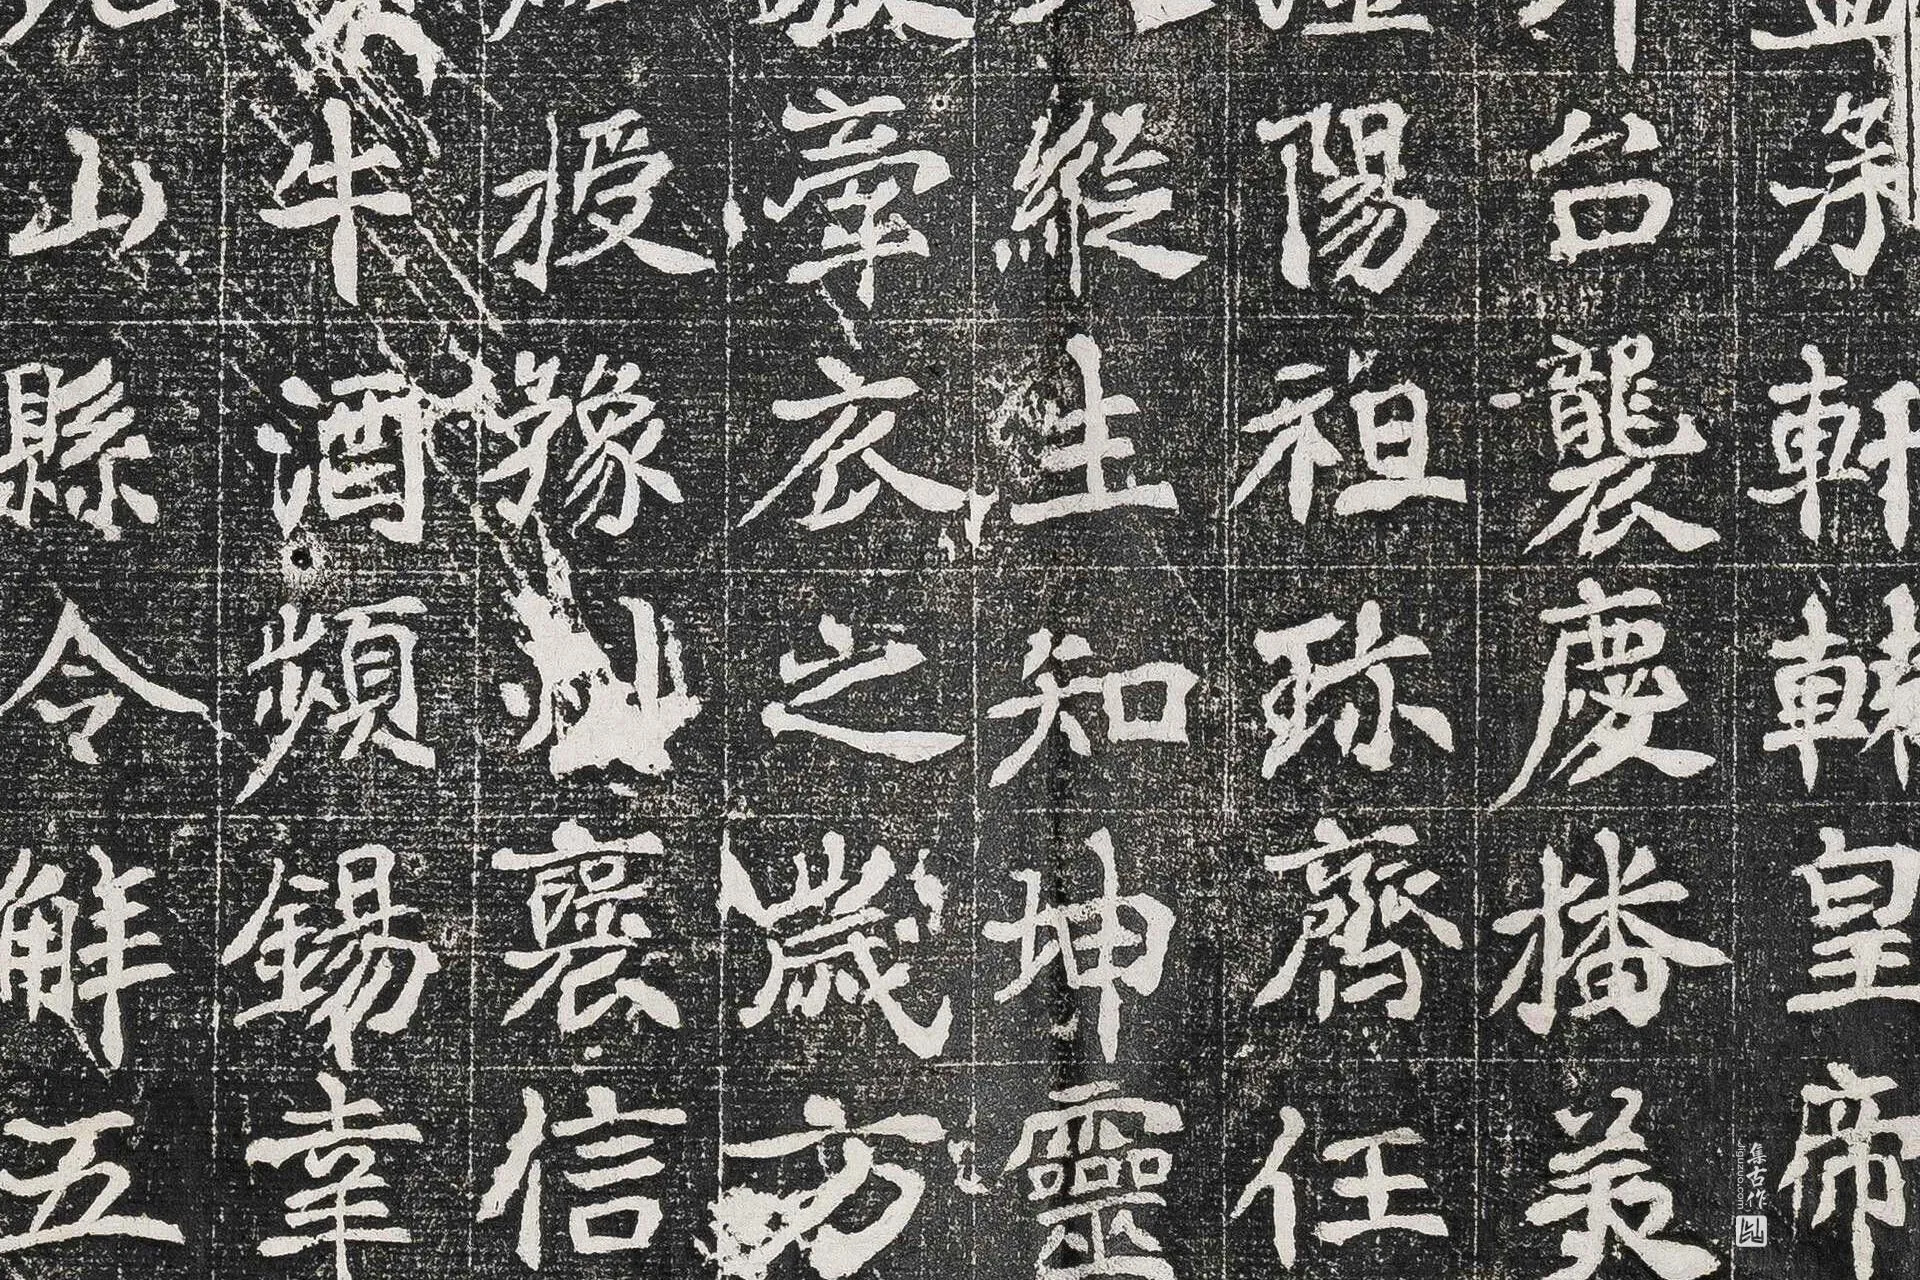 軒轅皇帝
台襲慶播美
陽祖珎齊任
縱生知坤靈
牽衣之歲方
授豫州襄信
牛酒頻錫幸
山縣令解五
集古作
jiguzuo.com